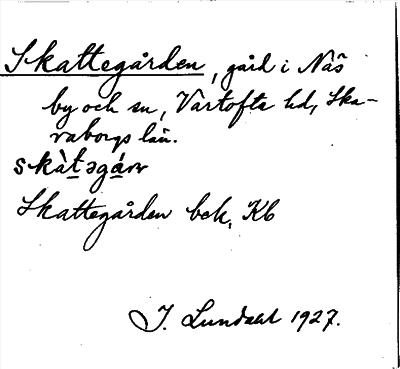 Skattegården, gård i Näs
by och sn, Vartofta hd, Ska-
raborgs län.
skàtəgán
Skattegården bek, Kb
I. Lundahl 1927.